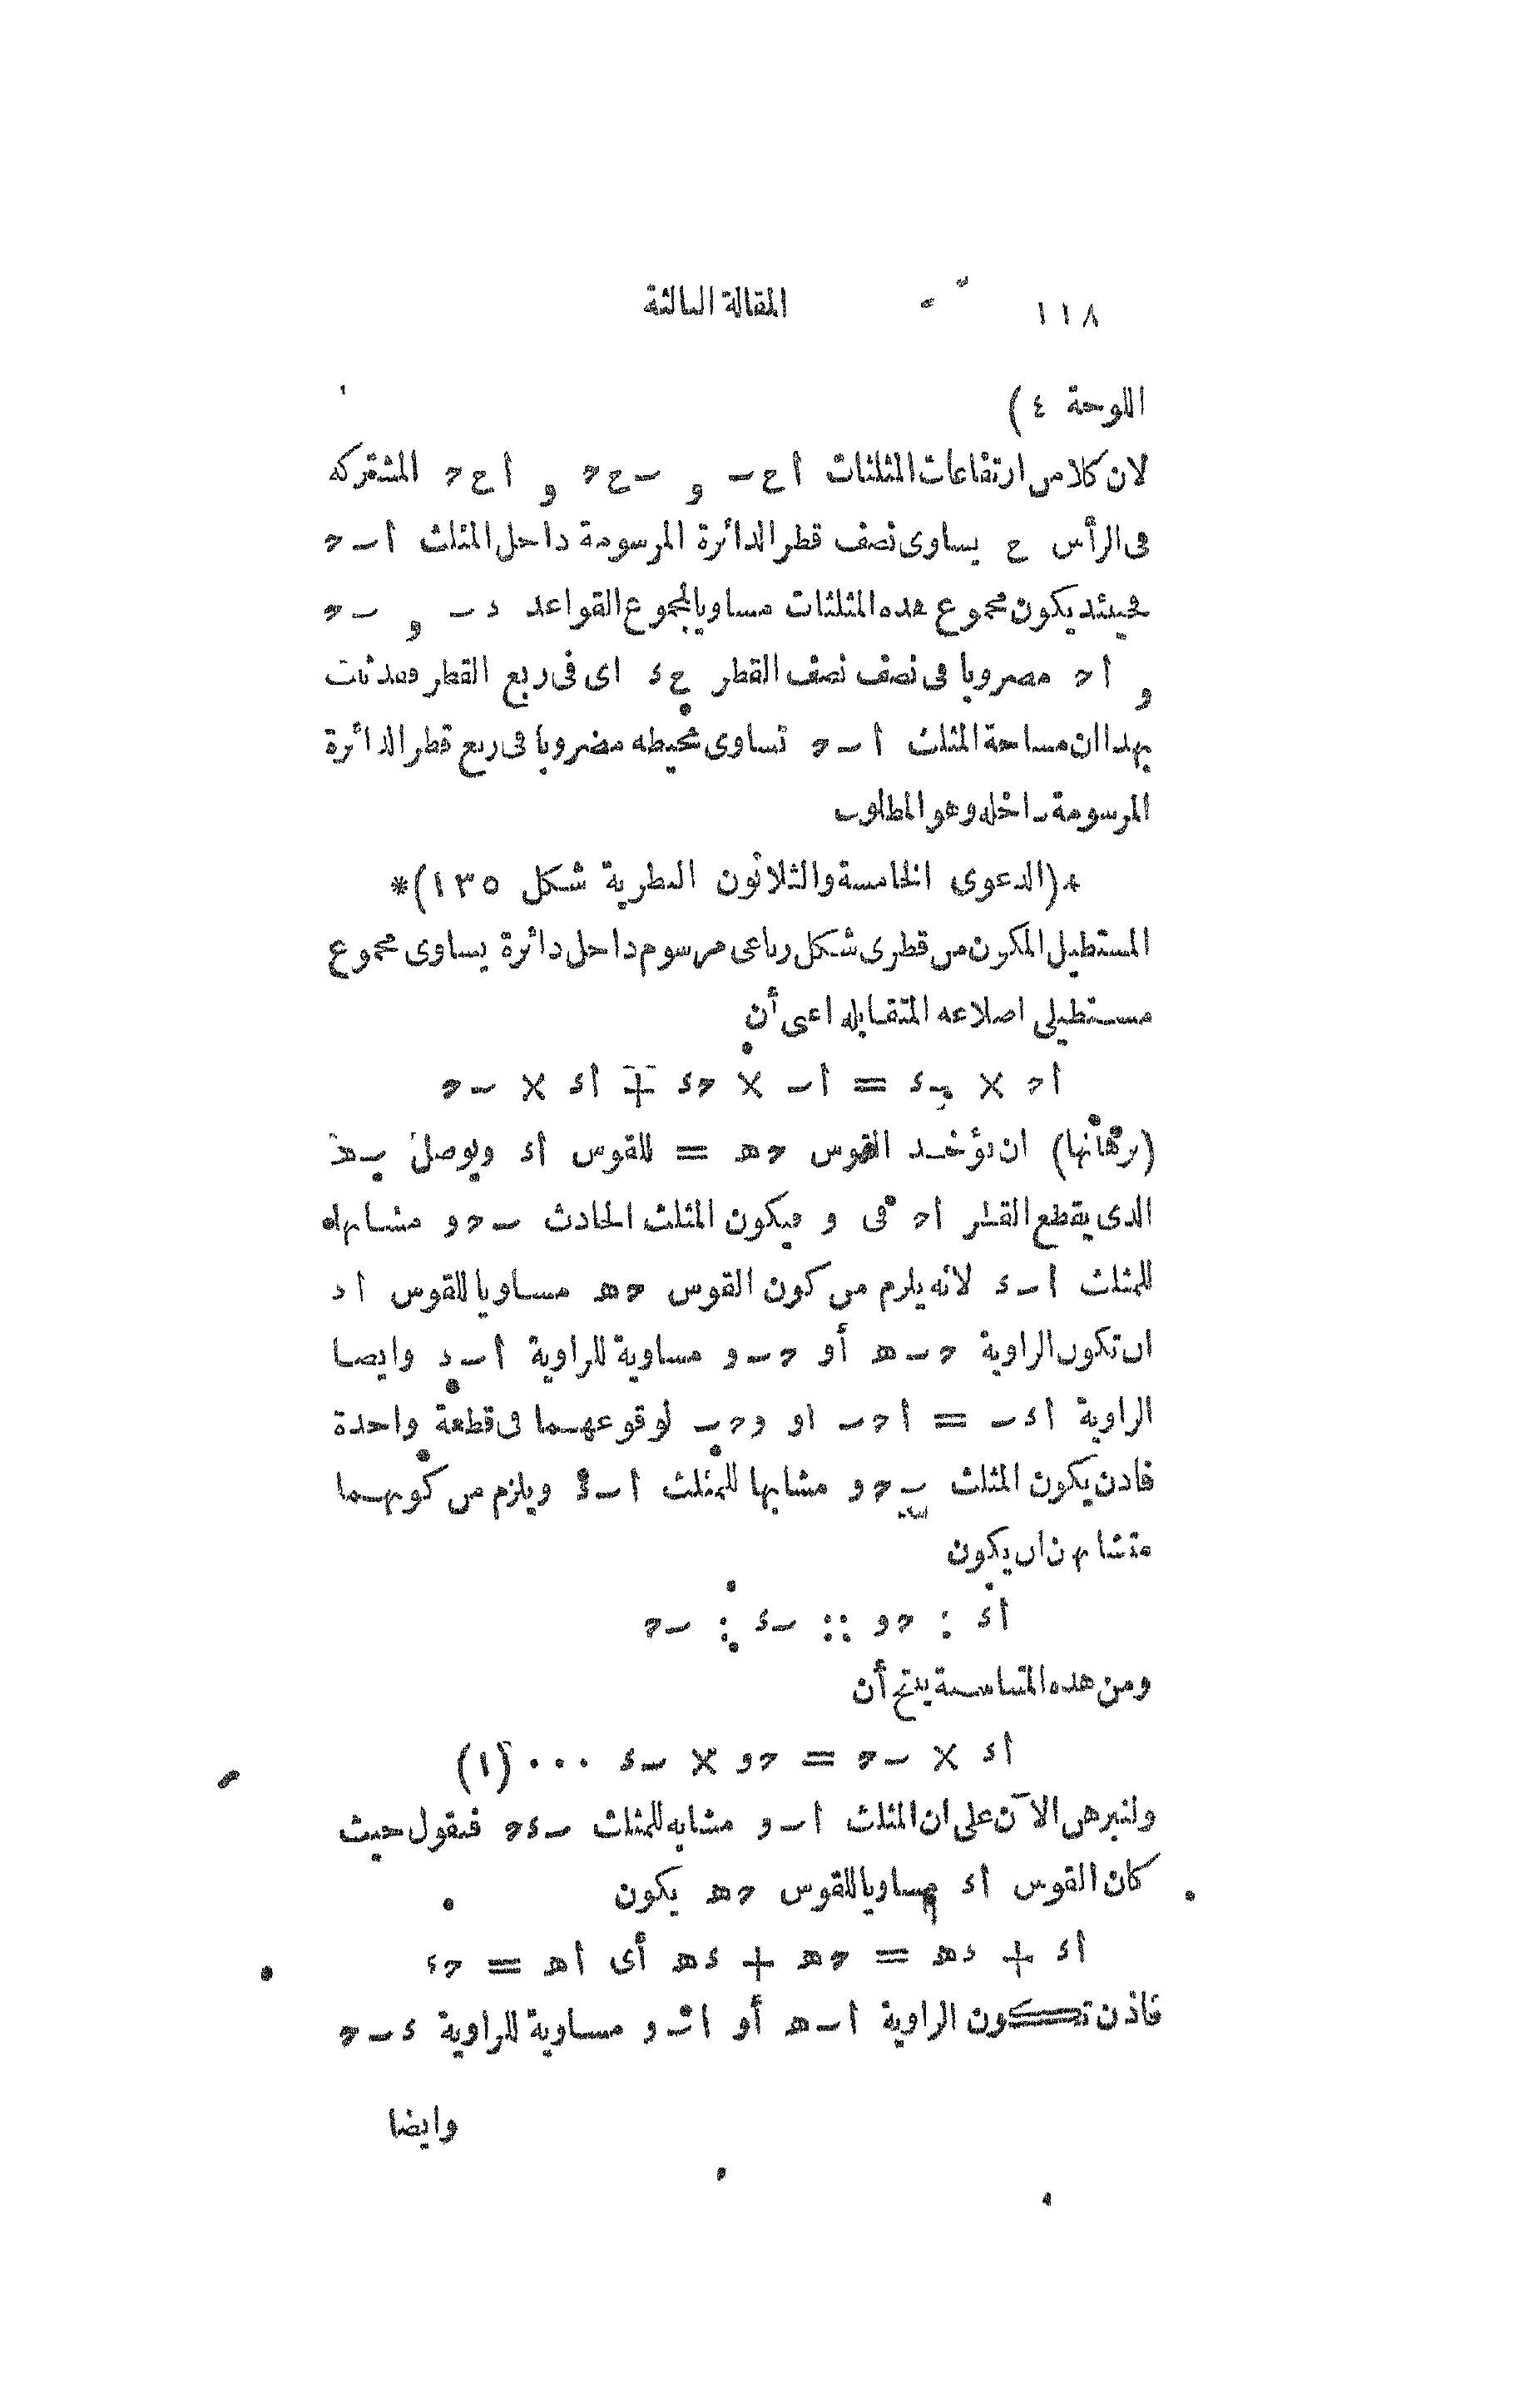 ١١٨ المقالة الثالثة
اللوحة ٤)
لان كلا من ارتفاعات المثلثات أ ح ب و ب ح ج و أ ح ج المشتركه
فى الرأس ح يساوى نصف قطر الدائرة المرسومة داخل المثلث أ ب ج
فحينئذ يكون مجموع هذه المثلثات مساويا لمجموع القواعد د ب و ب ج
و أ ج مضروبا فى نصف نصف القطر ح ء اى فى ربع القطر وقد ثبت
بهذا ان مساحة المثلث أ ب ج تساوى محيطه مضروبا فى ربع قطر الدائرة
المرسومة داخله وهو المطلوب
*(الدعوى الخامسة والثلاثون النظرية شكل ١٣٥)*
المستطيل المكون من قطرى شكل رباعى مرسوم داخل دائرة يساوى مجموع
مستطيلى اضلاعه المتقابله اعنى أن
أ ج × ب ء = أ ب × ج ء + أ ء × ب ج
(برهانها) ان نؤخذ القوس ج ه = للقوس أ ء ويوصل ب ه
الذى يقطع القطر أ ج فى و فيكون المثلث الحادث ب ج و مشابها
للمثلث أ ب ء لانه يلزم من كون القوس ج ه مساويا للقوس أ د
ان تكون الزاوية ج ب ه أو ج ب و مساوية للزاوية أ ب د وايضا
الزاوية أ ء ب = أ ج ب او و ج ب لوقوعهما فى قطعة واحدة
فاذن يكون المثلث ب ج و مشابها للمثلث أ ب ء ويلزم من كونهما
متشابهين ان يكون
أ ء : ج و :: ب ء : ب ج
ومن هذه المتناسبة ينتج أن
أ ء × ب ج = ج و × ب ء ٠٠٠ (١)
ولنبرهن الآن على ان المثلث أ ب و مشابه للمثلث ب ء ج فنقول حيث
كان القوس أ ء مساويا للقوس ج ه يكون
أ ء + ء ه = ج ه + ء ه أى أ ه = ج ء
فاذن تكون الزاوية أ ب ه أو أ ب و مساوية للزاوية ء ب ج
وايضا